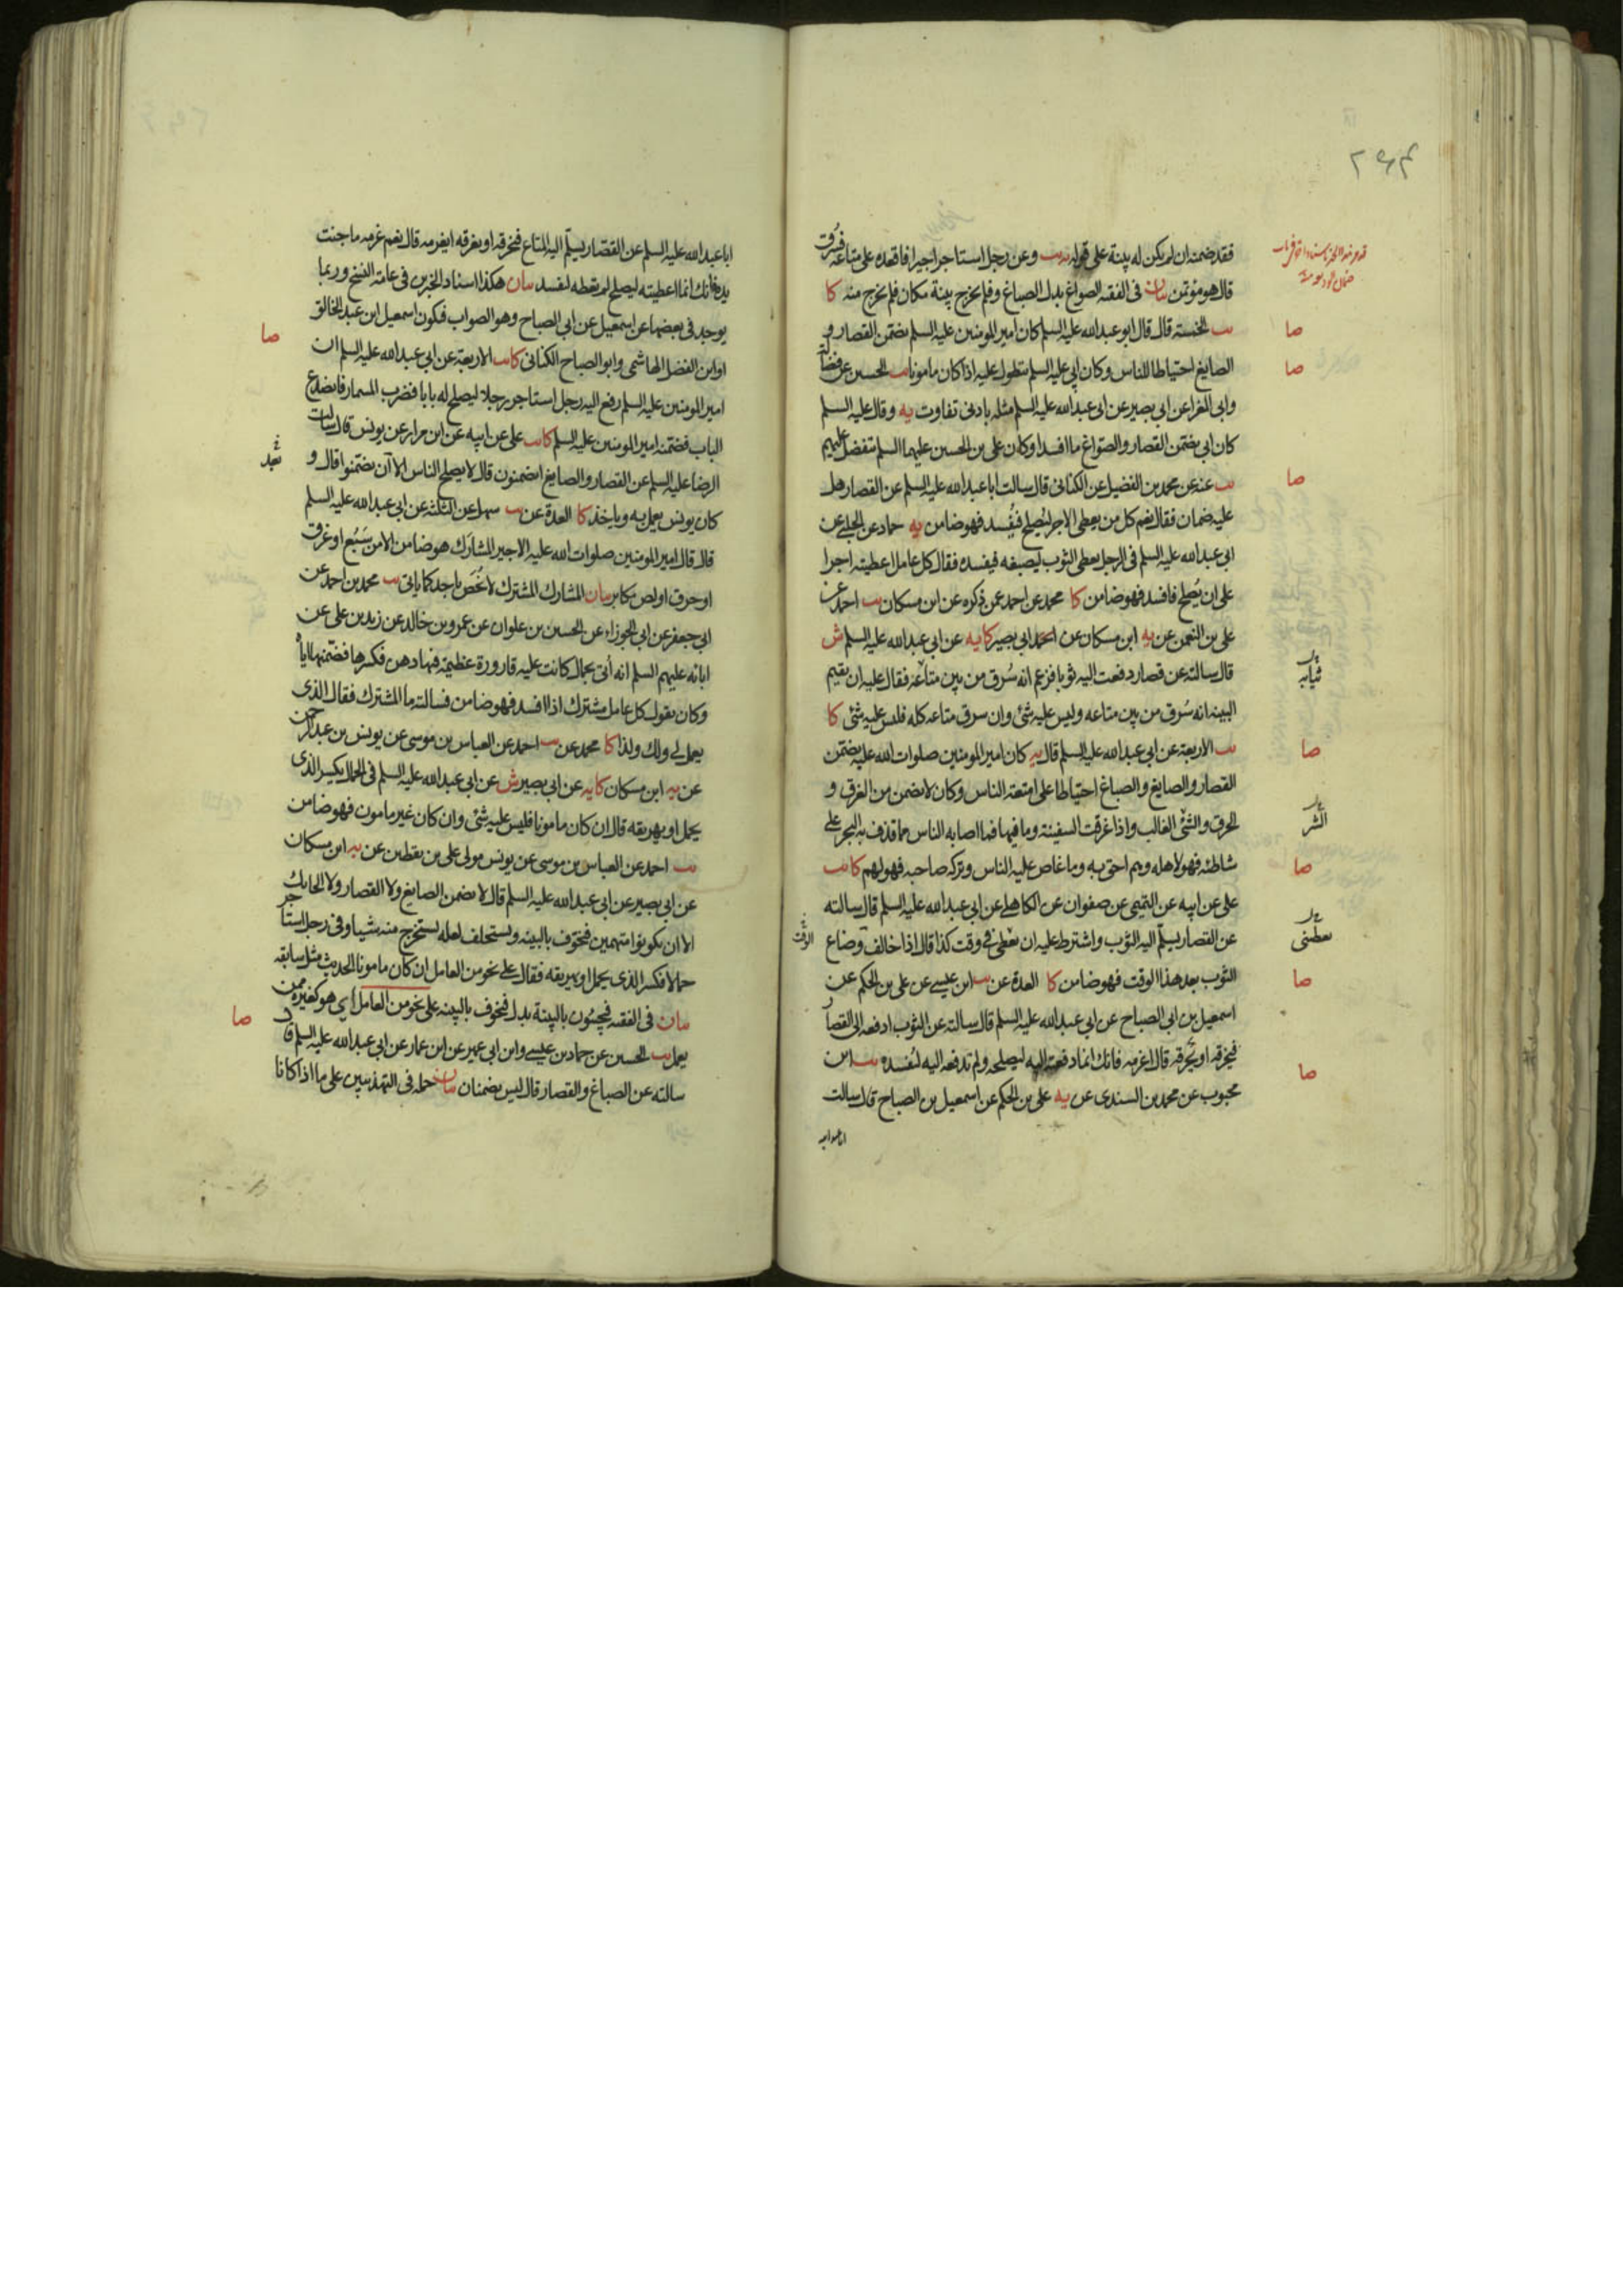 فقد ضمنه ان لم يكن له بينة على قوله يه يب وعن رجل استاجر اجيرا فاقعده على متاعه فسُرق
قال هو مؤتمن بيان في الفقه الصواغ بدل الصباغ وفلم يخرج بينة مكان فلم يخرج منه كا
يب الخمسة قال قال ابو عبدالله عليه السلم كان امير المومنين عليه السلم يضمن القصار و
الصايغ احتياطا للناس وكان ابي عليه السلم يتطول عليه اذا كان مامونا يب الحسين عن فضالة
وابي المغرا عن ابي بصير عن ابي عبدالله عليه السلم مثله بادنى تفاوت يه وقال عليه السلم
كان ابي يضمن القصار والصواغ ما افسدا وكان علي بن الحسين عليهما السلم يتفضل عليهم
يب عنه عن محمد بن الفضيل عن الكناني قال سالت ابا عبدالله عليه السلم عن القصار هل
عليه ضمان فقال نعم كل من يعطى الاجر ليُصلح فيُفسد فهو ضامن يه حماد عن الحلبي عن
ابي عبدالله عليه السلم في الرجل يعطى الثوب ليصبغه فيفسده فقال كل عامل اعطيته اجرا
على ان يُصلح فافسد فهو ضامن كا محمد عن احمد عمن ذكره عن ابن مسكان يب احمد عن
علي بن النعمن عن يه ابن مسكان عن ابي بصير كا يه عن ابي عبدالله عليه السلم ش
قال سالته عن قصار دفعت اليه ثوبا فزعم انه سُرق من بين متاعه فقال عليه ان يقيم
البينه انه سُرق من بين متاعه وليس عليه شئ وان سرق متاعه كله فليس عليه شئ كا
يب الاربعة عن ابي عبدالله عليه السلم قال يه كان امير المومنين صلوات الله عليه يضمن
القصار والصايغ والصباغ احتياطا على امتعة الناس وكان لا يضمن من الغرق و
الحرق والشئ الغالب واذا غرقت السفينة وما فيها فما اصابه الناس مما قذف به البحر على
شاطئه فهو لاهله وهم احق به وما غاص عليه الناس وتركه صاحبه فهو لهم كا يب
علي عن ابيه عن التميمي عن صفوان عن الكاهلي عن ابي عبدالله عليه السلم قال سالته
عن القصار يسلّم اليه الثوب واشترط عليه ان يعطى في وقت كذا قال اذا خالف وضاع
الثوب بعد هذا الوقت فهو ضامن كا العدة عن يب ابن عيسى عن علي بن الحكم عن
اسمعيل بن ابي الصباح عن ابي عبدالله عليه السلم قال سالته عن الثوب ادفعه الى القصار
فيخرقه او يحرقه قال اغرمه فانك انما دفعته اليه ليصلحه ولم تدفعه اليه ليُفسده يب ابن
محبوب عن محمد بن السندي عن يه علي بن الحكم عن اسمعيل بن الصباح قال سالت
ابا عبدالله
صا
صا
صا
ثيابه
صا
الشر
صا
يعطنى
صا
صا
الوقت
ابا عبدالله عليه السلم عن القصار يسلّم اليه المتاع فيخرقه او يغرقه ايغرمه قال نعم غرمه ما جنت
يده فانك انما اعطيته ليصلح لم يعطه ليفسد بيان هكذا اسناد الخبرين في عامة النسخ وربما
يوجد في بعضها عن اسمعيل عن ابي الصباح وهو الصواب فيكون اسمعيل ابن عبد الخالق
او ابن الفضل الهاشمي وابو الصباح الكناني كا يب الاربعة عن ابي عبدالله عليه السلم ان
امير المومنين عليه السلم رفع اليه رجل استاجر رجلا ليصلح له بابا فضرب المسمار فانصدع
الباب فضمنه امير المومنين عليه السلم كا يب علي عن ابيه عن ابن مرار عن يونس قال سالت
الرضا عليه السلم عن القصار والصايغ ايضمنون قال لا يصلح الناس الا ان يضمنوا قال و
كان يونس يعمل به وياخذ كا العدة عن يب سهل عن الثلثة عن ابي عبدالله عليه السلم
قال قال امير المومنين صلوات الله عليه الاجير المشارك هو ضامن الا من سَبُع او غرق
او حرق او لص مكابر بيان المشارك المشترك لا يُخَص باحد كما ياتي يب محمد بن احمد عن
ابي جعفر عن ابي الجوزاء عن الحسين بن علوان عن عمرو بن خالد عن زيد بن علي عن
ابائه عليهم السلم انه أتى بحمال كانت عليه قارورة عظيمة فيها دهن فكسرها فضمنها اياه
وكان يقول كل عامل مشترك اذا افسد فهو ضامن فسالته ما المشترك فقال الذي
يعمل لي ولك ولذا كا محمد عن يب احمد عن العباس بن موسى عن يونس بن عبد الرحمن
عن يه ابن مسكان كا يه عن ابي بصير ش عن ابي عبدالله عليه السلم في الحمال يكسر الذي
يحمل او يهريقه قال ان كان مامونا فليس عليه شئ وان كان غير مامون فهو ضامن
يب احمد عن العباس بن موسى عن يونس مولى علي بن يقطين عن يه ابن مسكان
عن ابي بصير عن ابي عبدالله عليه السلم قال لا يضمن الصايغ ولا القصار ولا الحايك
الا ان يكونوا متهمين فيخوّف بالبينه ويستحلف لعله يستخرج منه شيئا وفي رجل استاجر
حمالا فكسر الذي يحمل او يهريقه فقال على نحو من العامل ان كان مامونا الحديث مثل سابقه
بيان في الفقيه فيجيئون بالبينة بدل فيخوف بالبينه على نحو من العامل اي هو كغيره ممن
يعمل يب الحسين عن حماد بن عيسى وابن ابي عمير عن ابن عمار عن ابي عبدالله عليه السلم قال
سالته عن الصباغ والقصار قال ليس يضمنان بيان حمله في التهذيبين على ما اذا كانا
صا
صا